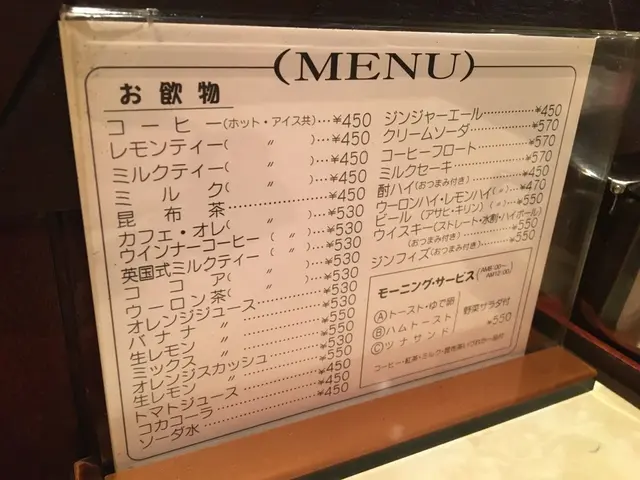 (MENU)
お飲物
コーヒー(ホット・アイス共)…¥450
レモンティー( 〃 )…¥450
ミルクティー( 〃 )…¥450
ミルク( 〃 )…¥450
昆布茶…¥450
カフェ・オレ( 〃 )…¥530
ウインナーコーヒー( 〃 )…¥530
英国式ミルクティー…¥530
ココア( 〃 )…¥530
ウーロン茶( 〃 )…¥530
オレンジジュース…¥530
バナナ 〃
生レモン 〃
ミックス 〃
オレンジスカッシュ
生レモン 〃
トマトジュース…¥450
コカコーラ…¥450
ソーダ水…¥450
ジンジャーエール…¥450
クリームソーダ…¥570
コーヒーフロート…¥570
ミルクセーキ…¥570
酎ハイ(おつまみ付き)…¥450
ウーロンハイ・レモンハイ(〃)…¥470
ビール(アサヒ・キリン)(〃)…¥550
ウイスキー(ストレート・水割・ハイボール)
(おつまみ付き)…¥550
ジンフィズ(おつまみ付き)…¥550
モーニング・サービス
Ⓐトースト・ゆで卵
Ⓑハムトースト
Ⓒツナサンド
野菜サラダ付
¥550